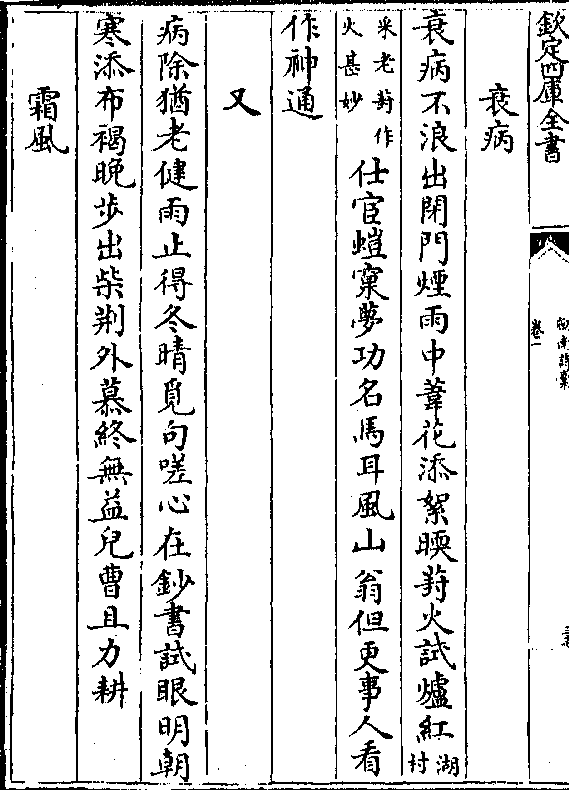 欽定四庫全書
南詩藁
衰病
衰病不浪出閉門煙雨中葦花添絮暖葑火試爐紅湖村
采老葑作火甚妙仕宦螘窠夢功名馬耳風山翁但更事人看
作神通
又
病除猶老健雨止得冬晴覓句嗟心在鈔書試眼明朝
寒添布褐晚步出柴荆外慕終無益兒曹且力耕
霜風